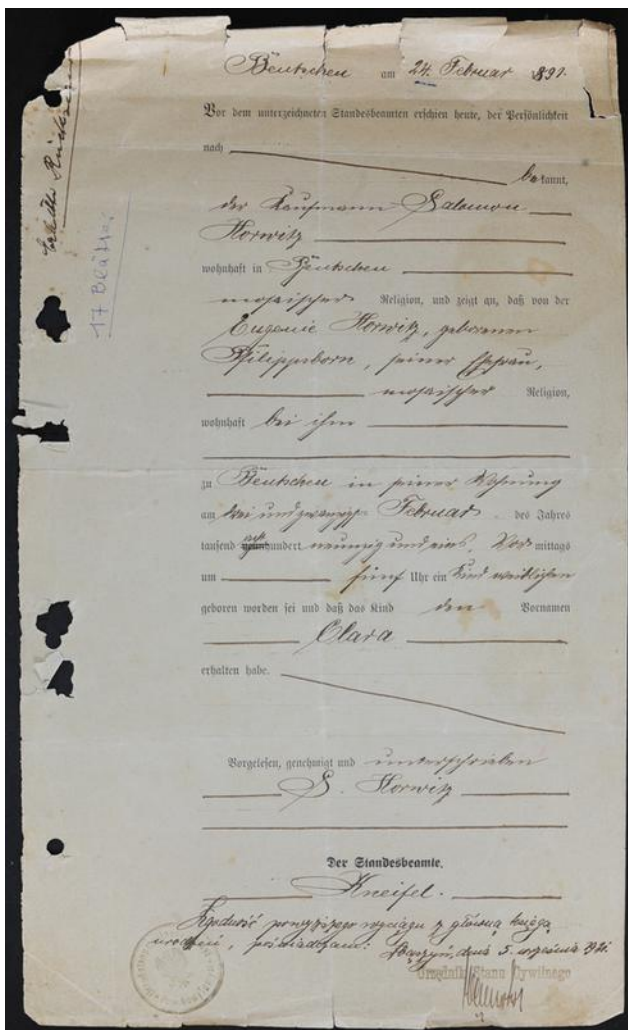 Bentschen am 24. Februar 1891.
Vor dem unterzeichneten Standesbeamten erschien heute, der Persönlichkeit
nach
bekannt,
der Kaufmann Salomon
Horwitz
wohnhaft in Bentschen
mosaischer Religion, und zeigt an, daß von der
Eugenie Horwitz, geborenen
Philippsborn, seiner Ehefrau,
mosaischer Religion,
wohnhaft bei ihm
zu Bentschen in seiner Wohnung
am drei und zwanzigsten Februar des Jahres
tausend acht hundert neunzig und eins, Vor mittags
um fünf Uhr ein Kind weiblichen
geboren worden sei und daß das Kind den Vornamen
Clara
erhalten habe.
Vorgelesen, genehmigt und unterschrieben
S. Horwitz
Der Standesbeamte.
Kneifel.
Zgodność powyższego wyciągu z główną księgą
urodzeń, poświadczam: Zbąszyń, dnia 5. września
Urzędnik Stanu Cywilnego
17 Blätter